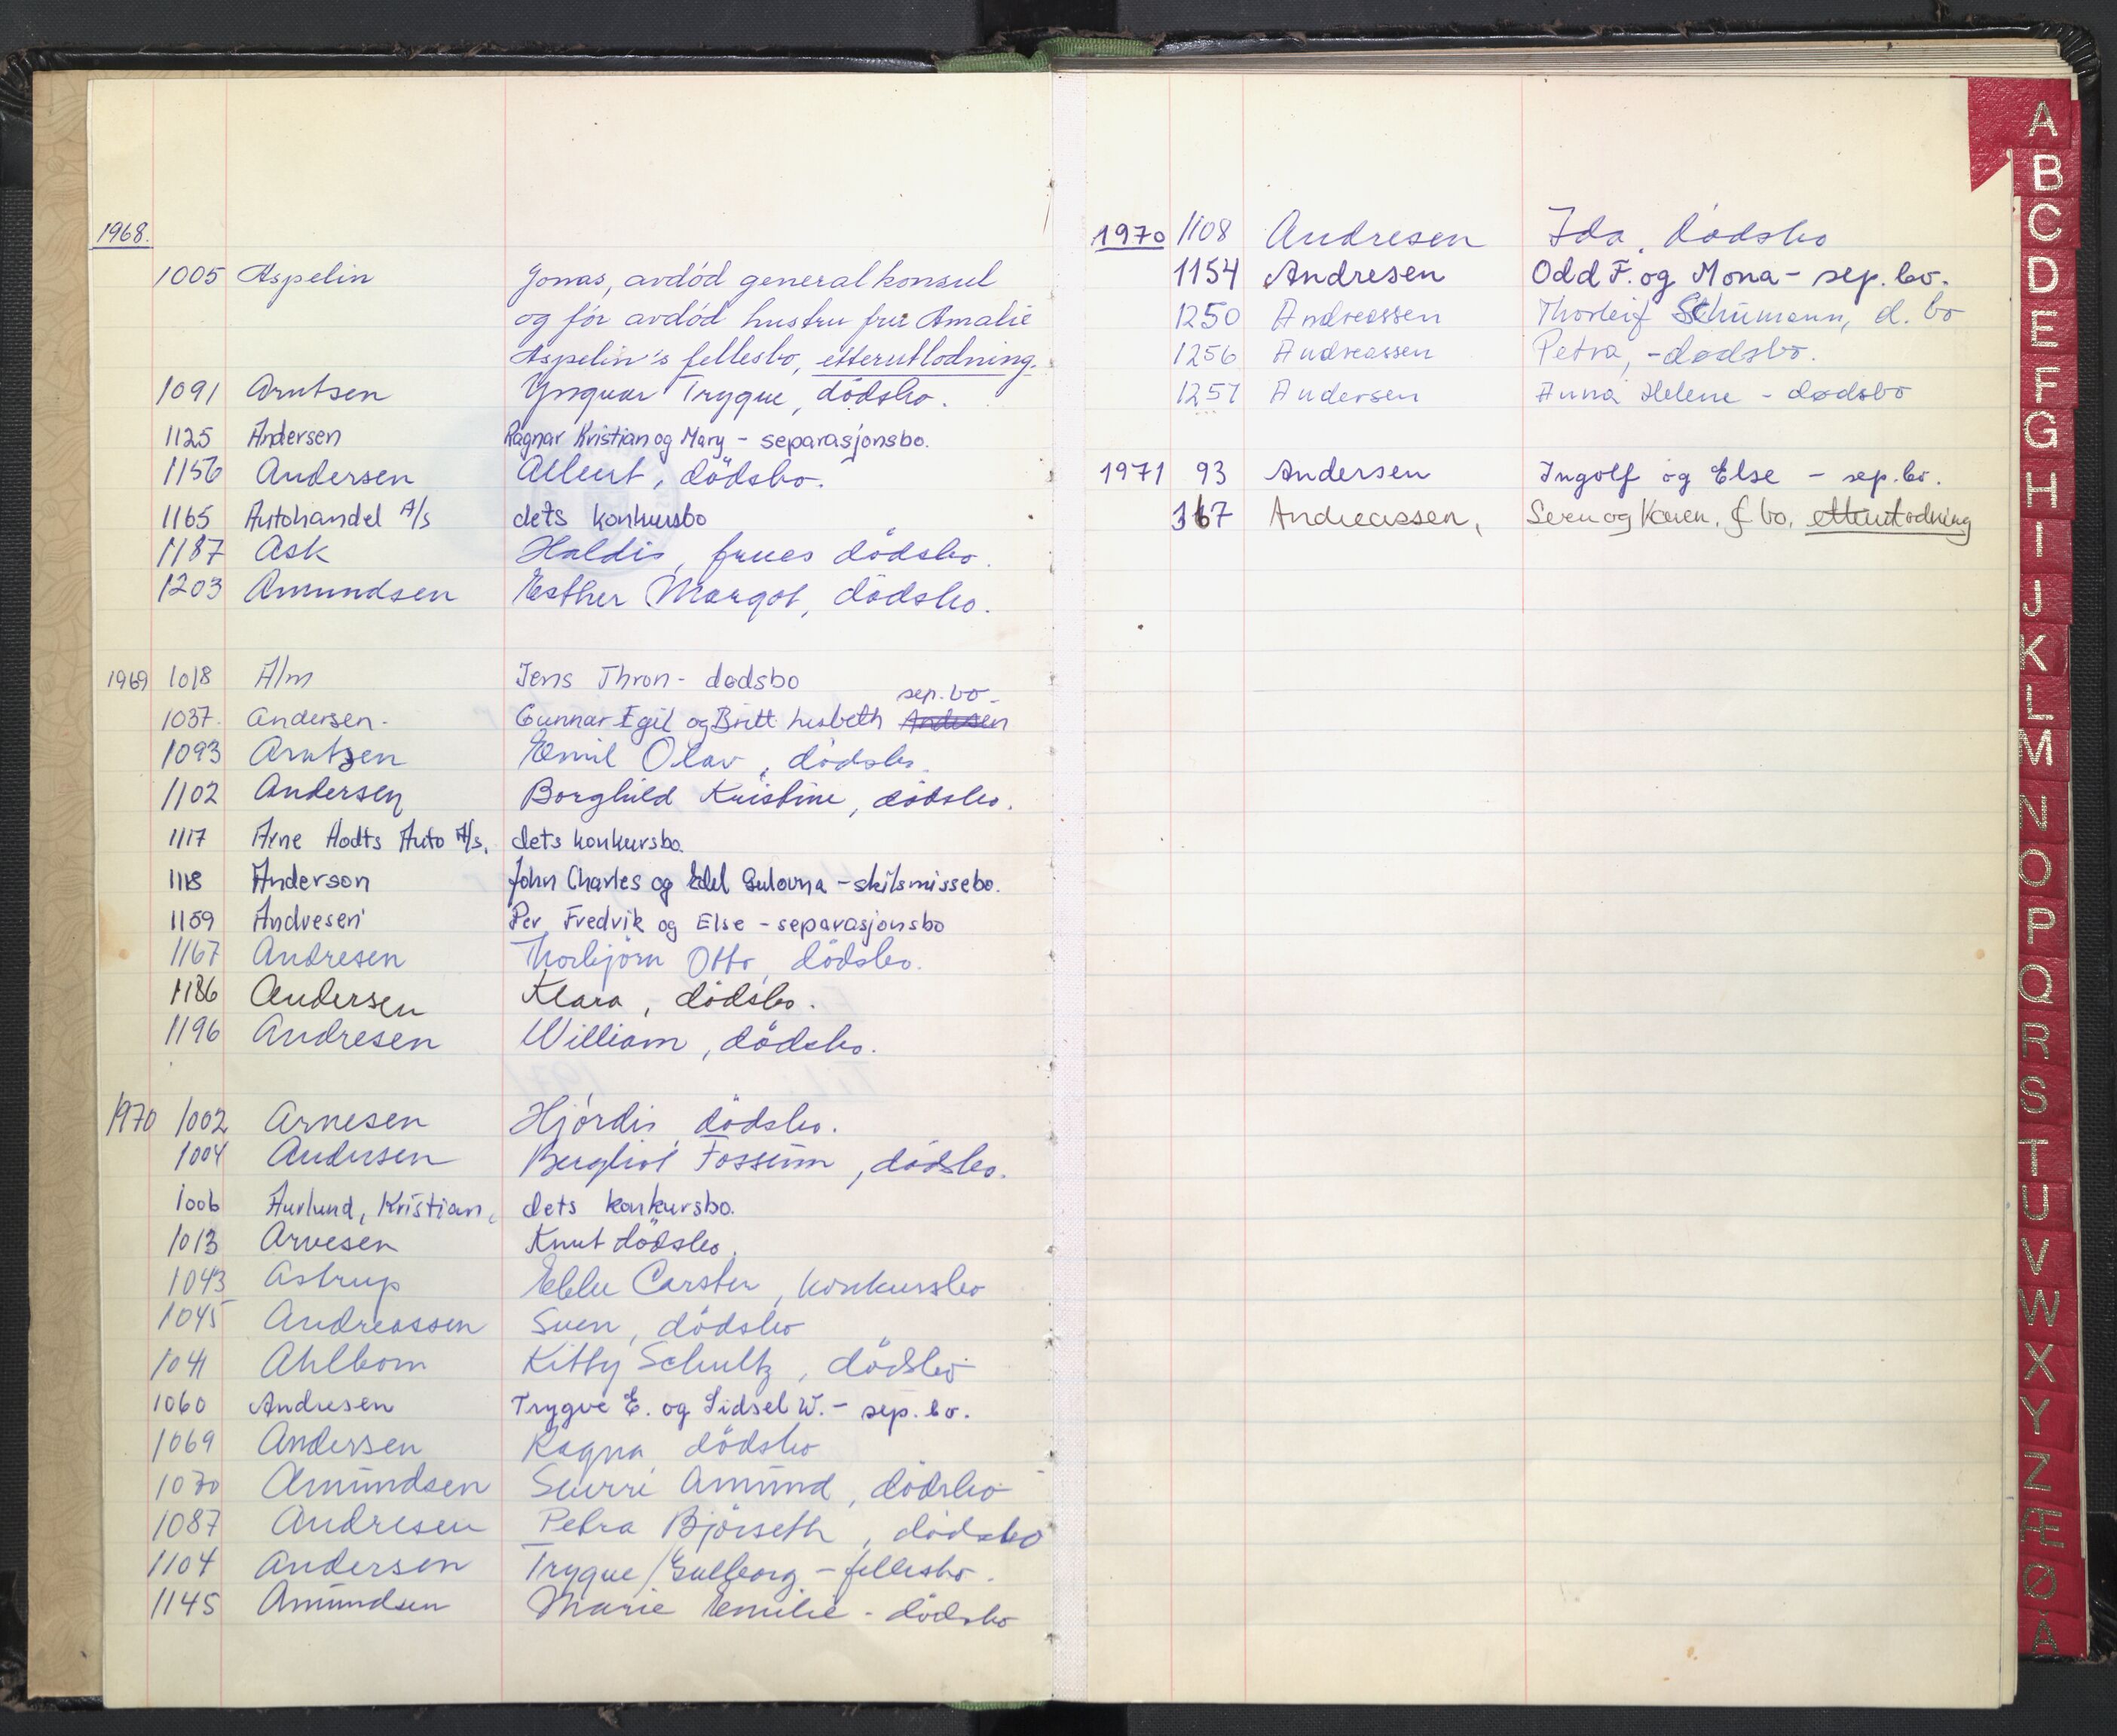 1968.
1005 Aspelin Jonas, avdöd generalkonsul
og för avdöd hustru fru Amalie
Aspelin's fellesbo, etterutlodning.
1091 Arntsen Yngvar Trygve, dödsbo.
1125 Andersen Ragnar Kristian og Mary - separasjonsbo.
1156 Andersen Albert, dödsbo.
1165 Autohandel A/s dets konkursbo
1187 Ask Haldis, frues dödsbo.
1203 Amundsen Esther Margot, dödsbo.
1969 1018 Alm Jens Thron - dødsbo
sep. bo -
1037. Andersen - Gunnar Egil og Britt Lisbeth Andersen
1093 Arntzen Emil Olav, dödsbo.
1102 Andersen Borghild Kristine, dödsbo.
1117 Arne Hodts Auto A/s, dets konkursbo.
1118 Anderson John Charles og Edel Gulovna - skilsmissebo.
1159 Andresen Per Fredrik og Else - separasjonsbo
1167 Andresen Thorbjörn Otto, dödsbo.
1186 Andersen Klara, dödsbo.
1196 Andresen William, dödsbo.
1970 1002 Arnesen Hjördis, dödsbo.
1004 Andersen Bergliot Fossum, dödsbo.
1006 Aurlund, Kristian, dets konkursbo.
1013 Arvesen Knut dödsbo.
1043 Astrup Ebbe Carsten, konkursbo
1045 Andreassen Sven, dödsbo
1041 Ahlbom Kitty Schultz, dödsbo
1060 Andresen Trygve E. og Sidsel W. - sep. bo.
1069 Anderssen Ragna dödsbo
1070 Amundsen Sverre Amund, dödsbo
1087 Andresen Petra Björseth, dödsbo
1104 Andersen Trygve/Gulborg - fellesbo.
1145 Amundsen Marie Emilie - dödsbo
1970 1108 Andresen Ida, dödsbo
1154 Andresen Odd F. og Mona - sep. bo.
1250 Andreassen Thorleif Schumann, d. bo
1256 Andreassen Petra, - dødsbo.
1257 Andersen Anna Helene - dødsbo
1971 93 Andersen Ingolf og Else - sep. bo.
367 Andreassen, Sven og Karen, f bo, etterutlodning
A
B
C
D
E
F
G
H
I
J
K
L
M
N
O
P
Q
R
S
T
U
V
W
X
Y
Z
Æ
Ø
Å